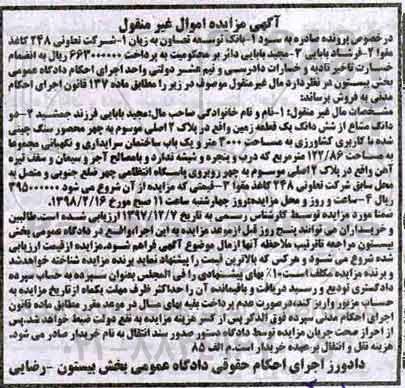 آگهی مزایده اموال غیر منقول
درخصوص پرونده صادره به سود ۱-بانک توسعه تعاون به زیان ۱-شرکت تعاونی ۲۴۸ کاغذ
مقوا ۲-فرشاد بابایی ۳-مجید بابایی دائر بر محکومیت به پرداخت ۶۶۳۰۰۰۰۰۰ ریال به انضمام
خسارت تاخیر تادیه و خسارات دادرسی و نیم عشر دولتی واحد اجرای احکام دادگاه عمومی
بخش بیستون در نظر دارد مال غیر منقول موصوف در زیر را مطابق ماده ۱۳۷ قانون اجرای احکام
مدنی به فروش برساند:
مشخصات مال غیر منقول: ۱-نام و نام خانوادگی صاحب مال:مجید بابایی فرزند جمشید ۲-دو
دانگ مشاع از شش دانگ یک قطعه زمین واقع در پلاک ۲ اصلی موسوم به چهر محصور سنگ چینی
شده با کاربری کشاورزی به مساحت ۳۰۰۰ متر و یک باب ساختمان سرایداری و نگهبانی مجموعا
به مساحت ۱۲۲/۸۶ مترمربع که درب و پنجره و شیشه ندارد و بامصالح آجر و سیمان و سقف تیره
آهن واقع در پلاک ۲ اصلی موسوم به چهر روبروی پاسگاه انتظامی چهر ضلع جنوبی و متصل به
محل سابق شرکت تعاونی ۲۴۸ کاغذ مقوا ۳-قیمتی که مزایده از آن شروع می شود ۳۹۵۰۰۰۰۰۰
ریال ۴-ساعت و روز و محل مزایده:روز چهارشنبه ساعت ۱۱ صبح مورخ ۱۳۹۸/۲/۱۶.
ضمنا مورد مزایده توسط کارشناس رسمی به تاریخ ۱۳۹۷/۱۲/۷ ارزیابی شده است.طالبین
و خریداران می توانند پنج روز قبل ازموعد مزایده به این اجرا واقع در دادگاه عمومی بخش
بیستون مراجعه تاترتیب ملاحظه آنها ازمال موضوع آگهی فراهم شود.مزایده ازقیمت ارزیابی
شده شروع می شود و هرکس که بالاترین قیمت را پیشنهاد نماید برنده مزایده شناخته خواهدشد
و برنده مزایده مکلف است ۱۰٪ بهای پیشنهادی را فی المجلس بعنوان سپرده به حساب سپرده
دادگستری تودیع و رسید دریافت و باقیمانده آن را حداکثر ظرف مهلت یکماه از تاریخ مزایده به
حساب مزبور واریز کند؛درصورت عدم پرداخت بقیه بهای مال در موعد مقرر مطابق ماده قانون
اجرای احکام مدنی سپرده فوق الذکر پس از کسر هزینه مزایده به نفع دولت ضبط خواهد شد.پس
از احراز صحت جریان مزایده توسط دادگاه دستور صدور سند انتقال به نام خریدار صادر می شود.
هزینه نقل و انتقال برعهده خریدار است.م الف ۸۵
دادورز اجرای احکام حقوقی دادگاه عمومی بخش بیستون -رضایی